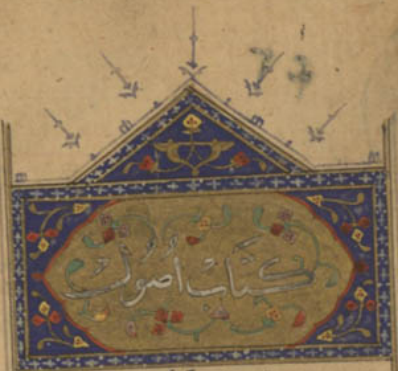 كتاب أصول